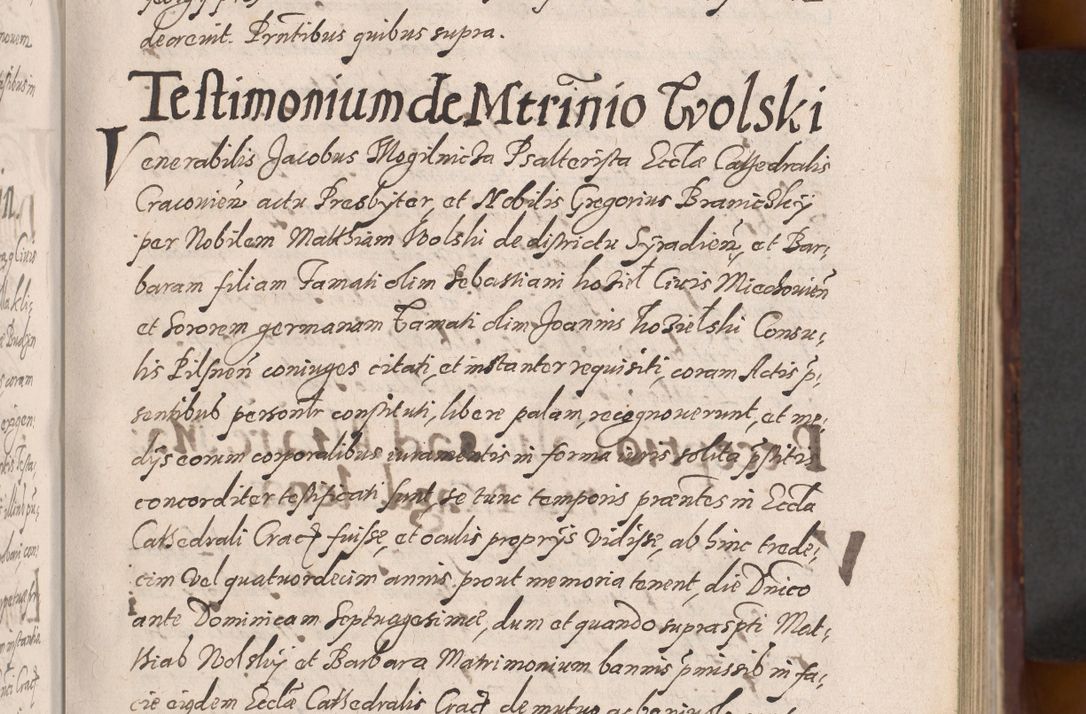 decreuit. Prntibus quibus supra.
Testimonium de Mtrimnio Wolski
Venerabilis Jacobus Mogilnicka Psalterista Eccłae Cathedralis
Cracouien actu Presbyter, et Nobilis Gregorius Branicskÿ
per Nobilem Matthiam Wolski de districtu Syradien, et Bar,
baram filiam Famati olim Sebastiani Ciuis Miechouien
et Sororem germanam Famati olim Joannis Consu,
lis Pilsnen coniuges citati, et instanter requisiti, coram Actis p,
sentibus personlr constituti, libere palam, recognouerunt, et me,
dijs eorum corporalibus iuramentis in forma iuris solita pstitis
concorditer testificati sunt, se tunc temporis praentes in Eccła
Cathedrali Crac fuisse, et oculis proprijs vidisse, ab hinc trede,
cim vel quatuordecim annis prout memoria tenent, die Dnico
ante Dominicam Septuagesimae, dum et quando suprascpti Mat,
thias Wolskÿ et Barbara Matrimonium bannis pmissis in fa,
cie eiusdem Eccłae Cathedralis Crac de mutuo